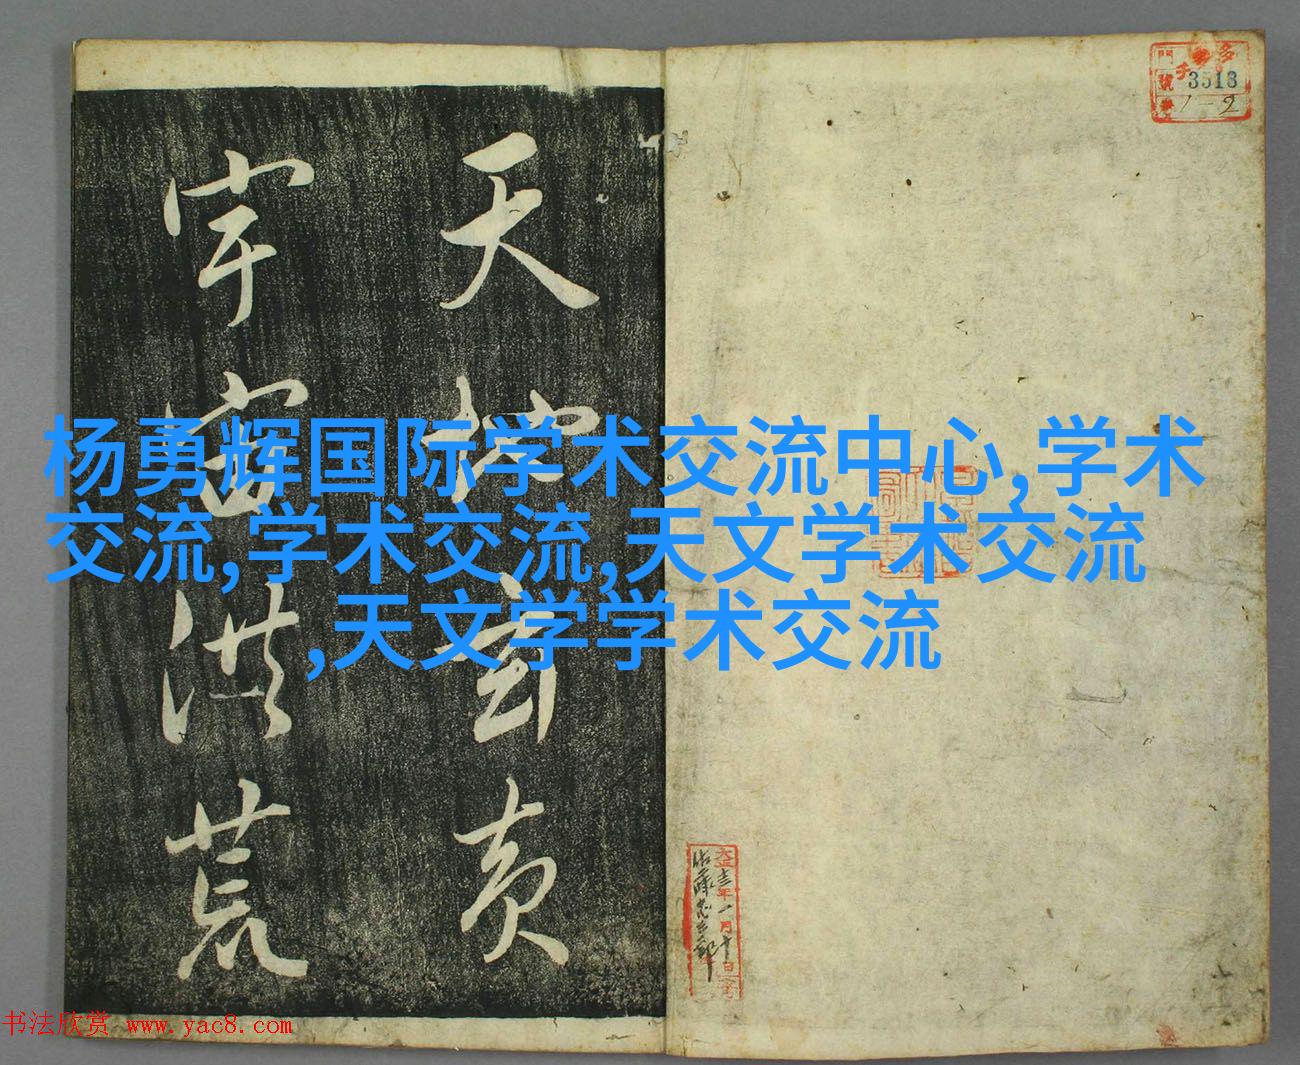 杨勇辉国际学术交流中心,学术
交流,学术交流,天文学术交流
,天文学学术交流
天地玄黄
宇宙洪荒
3513
1-2
书法欣赏 www.yac8.com